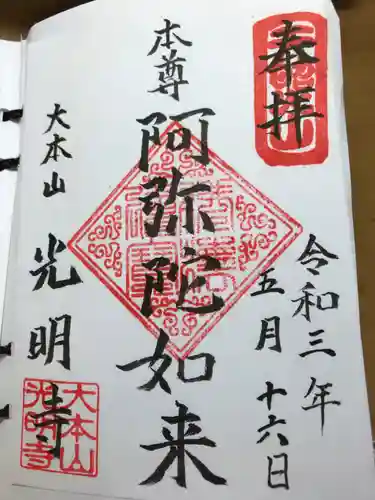 奉拝
令和三年
五月十六日
本尊
阿弥陀如来
大本山
光明寺
大本山
光明寺